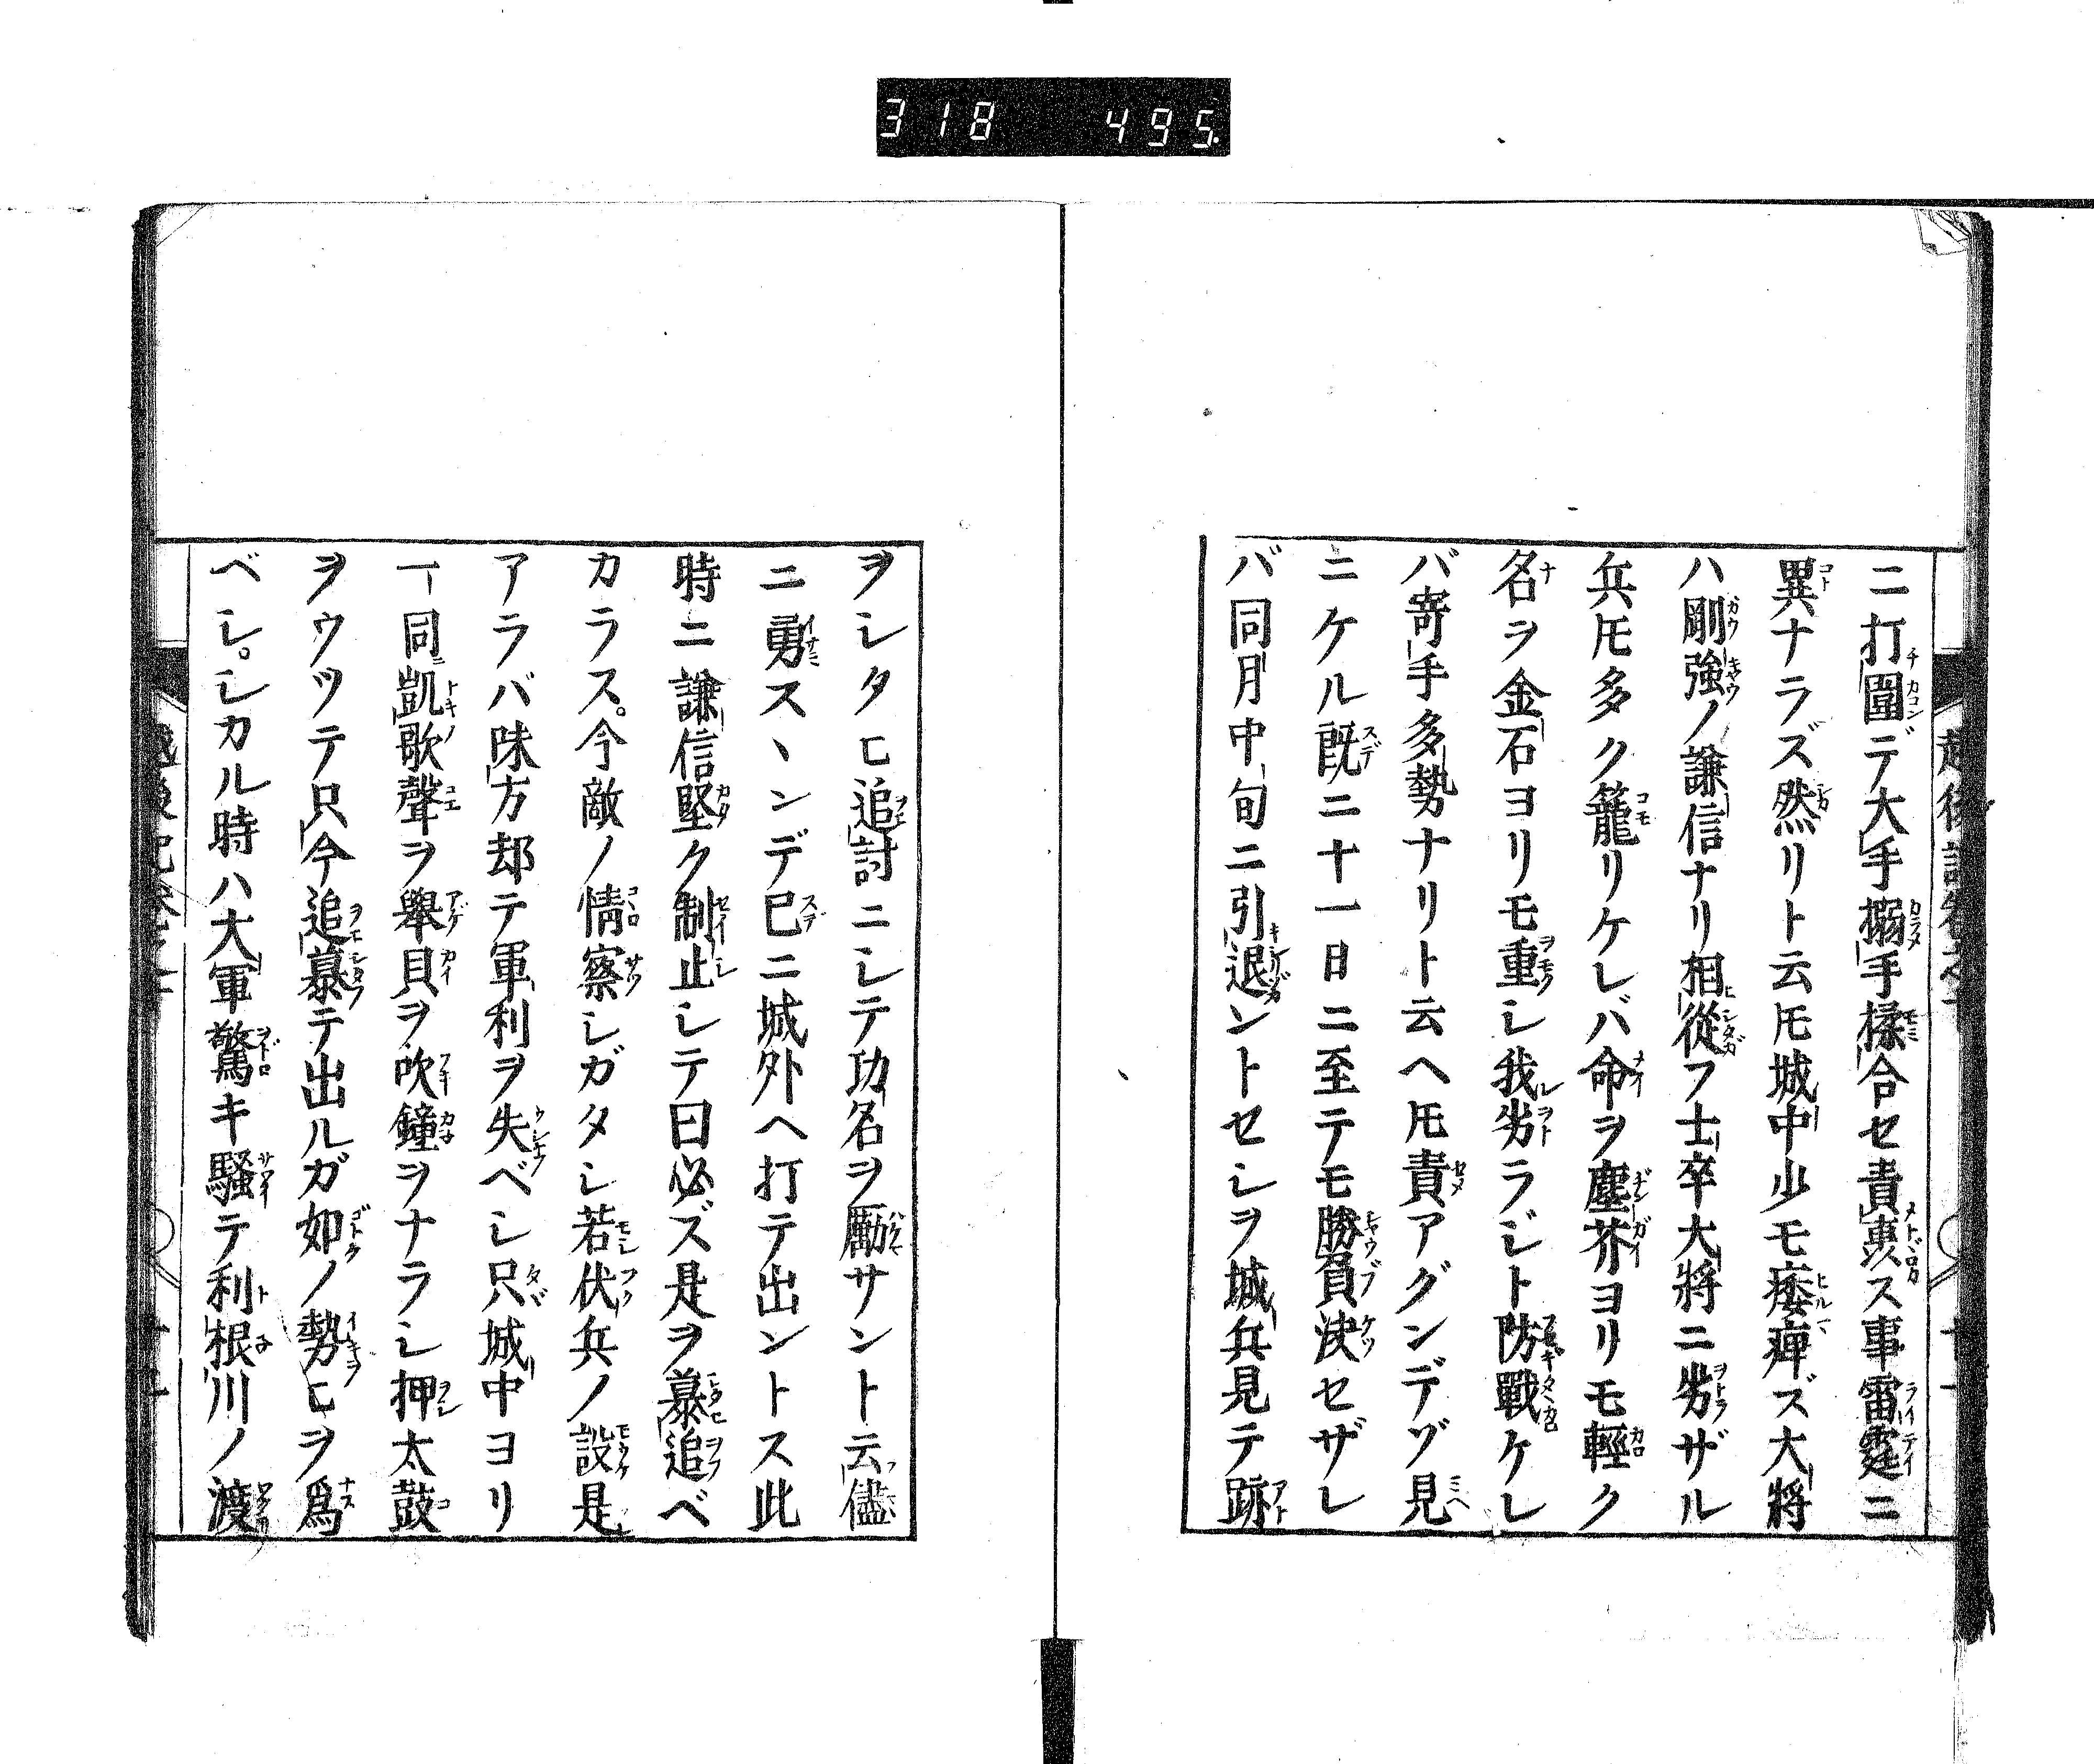 318 495
ニ打圍デ大手搦手揉合セ責裏ス事雷霆ニ
異ナラズ然リト云𪜈城中少モ痿痺ズ大將
ハ剛強ノ謙信ナリ相從フ士卒大將ニ劣ザル
兵𪜈多ク籠リケレバ命ヲ塵芥ヨリモ輕ク
名ヲ金石ヨリモ重シ我劣ラジト防戰ケレ
バ寄手多勢ナリト云ヘ𪜈責アグンデゾ見
ニケル既ニ十一日ニ至テモ勝負決セザレ
バ同月中旬ニ引退ントセシヲ城兵見テ跡
ヲシタヒ追討ニシテ功名ヲ勵サント云儘
ニ勇スヽンデ已ニ城外ヘ打テ出ントス此
時ニ謙信堅ク制止シテ曰必ズ是ヲ慕追ベ
カラス。今敵ノ情察シガタシ若伏兵ノ設是
アラバ味方却テ軍利ヲ失ベシ只城中ヨリ
一同凱歌聲ヲ舉貝ヲ吹鐘ヲナラシ押太鼓
ヲウツテ只今追慕テ出ルガ如ノ勢ヒヲ爲
ベシ。シカル時ハ大軍驚キ騷テ利根川ノ渡